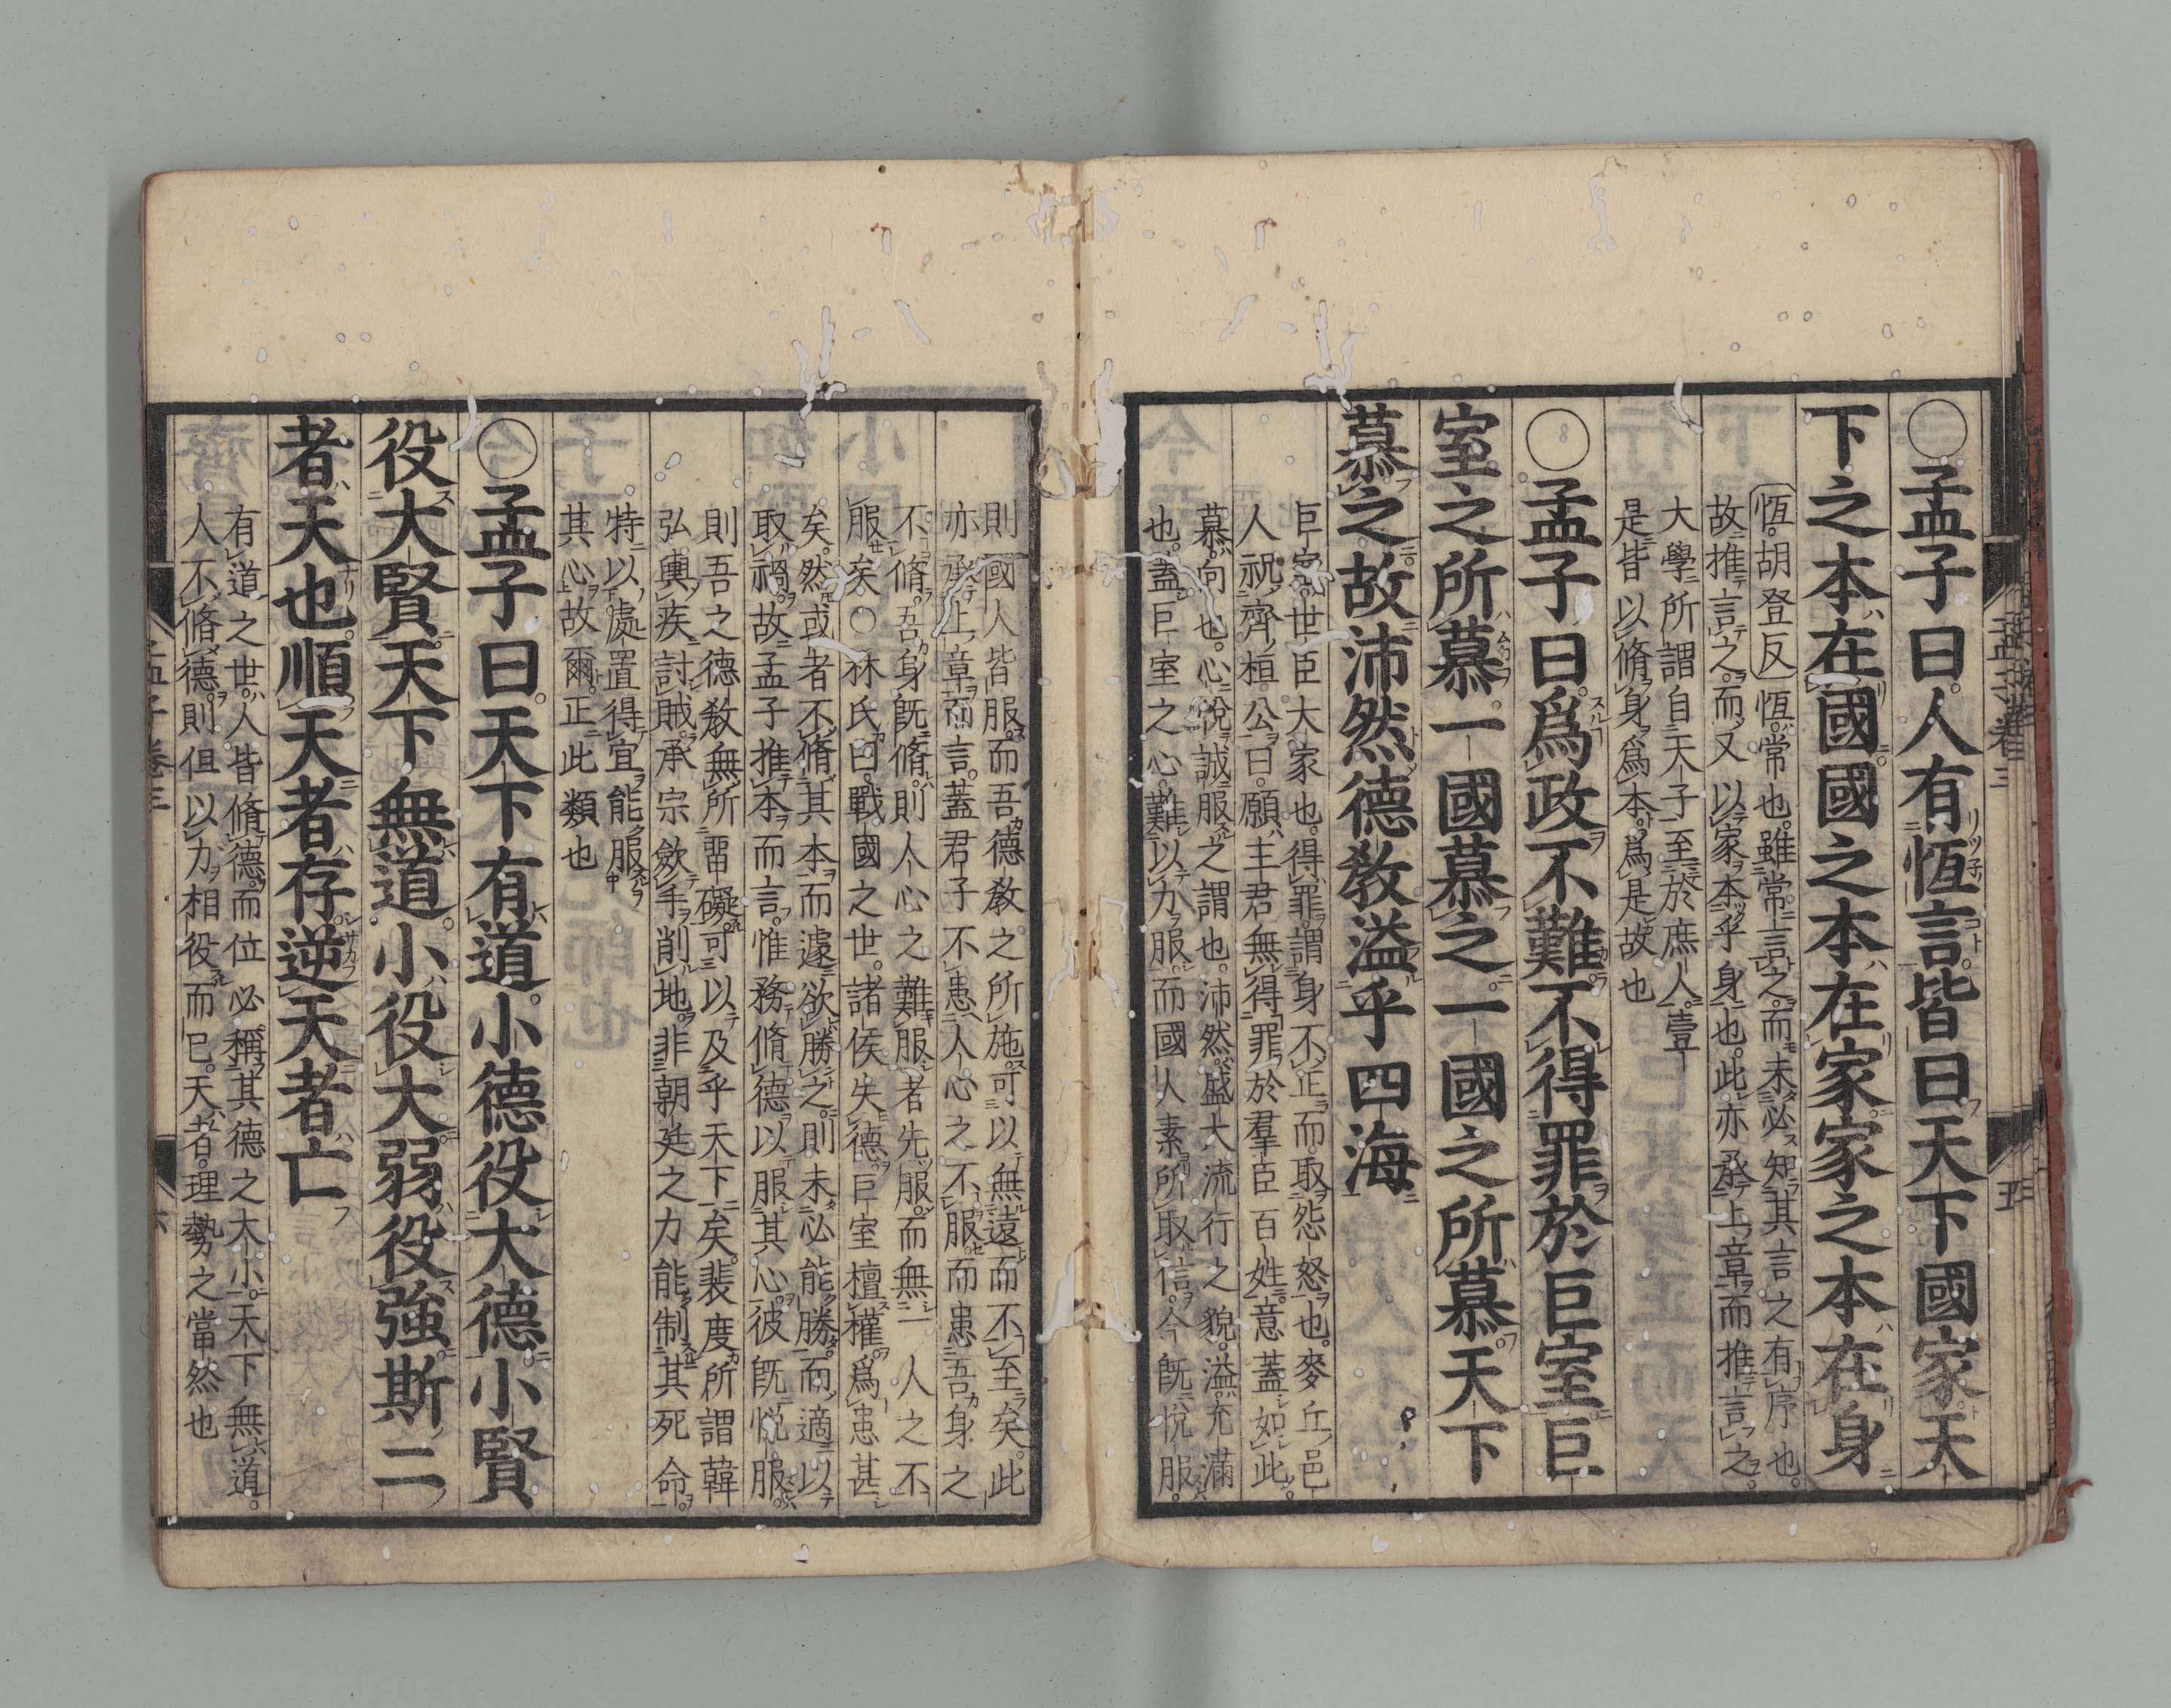 ○孟子曰人有恆言皆曰天下國家天
下之本在國國之本在家家之本在身
恆胡登反恆常也雖常言之而未必知其言之有序也
故推言之而又以家本乎身也此亦承上章而推言之
大學所謂自天子至於庶人壹
是皆以脩身爲本爲是故也
○孟子曰爲政不難不得罪於巨室巨
室之所慕一國慕之一國之所慕天下
慕之故沛然德敎溢乎四海
巨室世臣大家也得罪謂身不正而取怨怒也麥丘邑
人祝齊桓公曰願主君無得罪於羣臣百姓意蓋如此
慕向也心悅誠服之謂也沛然盛大流行之貌溢充滿
也蓋巨室之心難以力服而國人素所取信今旣悅服
則國人皆服而吾德敎之所施可以無遠而不至矣此
亦承上章而言蓋君子不患人心之不服而患吾身之
不脩吾身旣脩則人心之難服者先服而無一人之不
服矣○林氏曰戰國之世諸侯失德巨室擅權爲患甚
矣然或者不脩其本而遽欲勝之則未必能勝而適以
取禍故孟子推本而言惟務脩德以服其心彼旣悅服
則吾之德敎無所畱礙可以及乎天下矣裴度所謂韓
弘輿疾討賊承宗斂手削地非朝廷之力能制其死命
特以處置得宜能服
其心故爾正此類也
○孟子曰天下有道小德役大德小賢
役大賢天下無道小役大弱役強斯二
者天也順天者存逆天者亡
有道之世人皆脩德而位必稱其德之大小天下無道
人不脩德則但以力相役而已天者理勢之當然也
孟子卷三
五
孟子卷三
六